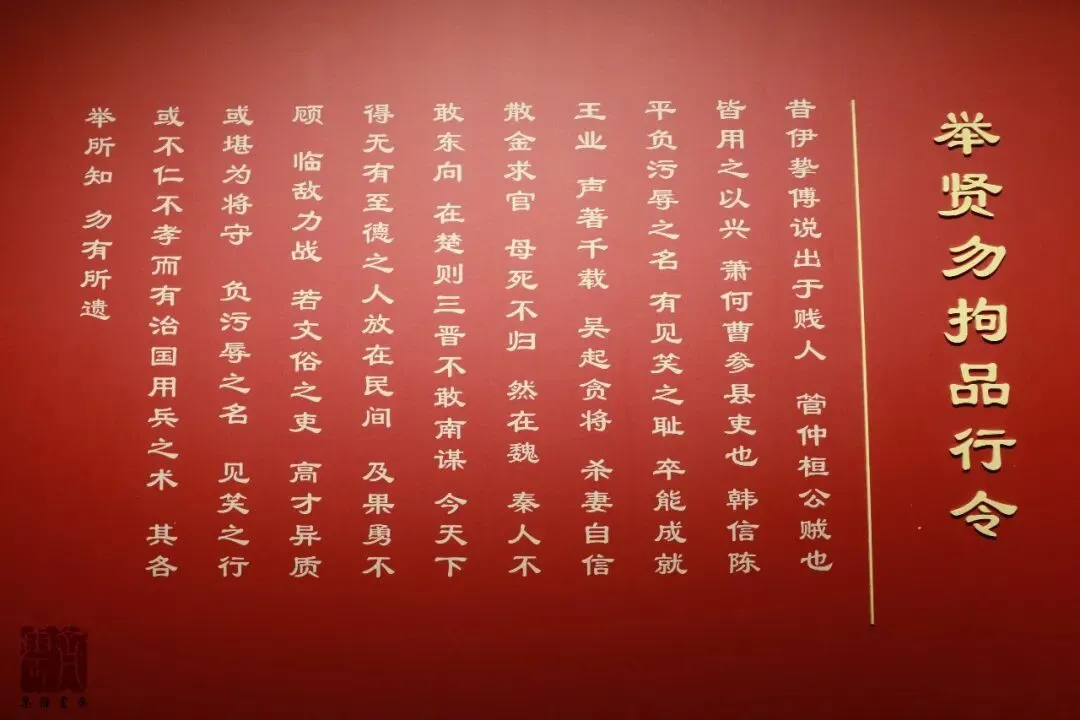 举贤勿拘品行令
昔伊挚傅说出于贱人 管仲桓公贼也
皆用之以兴 萧何曹参县吏也 韩信陈
平负污辱之名 有见笑之耻 卒能成就
王业 声著千载 吴起贪将 杀妻自信
散金求官 母死不归 然在魏 秦人不
敢东向 在楚则三晋不敢南谋 今天下
得无有至德之人放在民间 及果勇不
顾 临敌力战 若文俗之吏 高才异质
或堪为将守 负污辱之名 见笑之行
或不仁不孝而有治国用兵之术 其各
举所知 勿有所遗